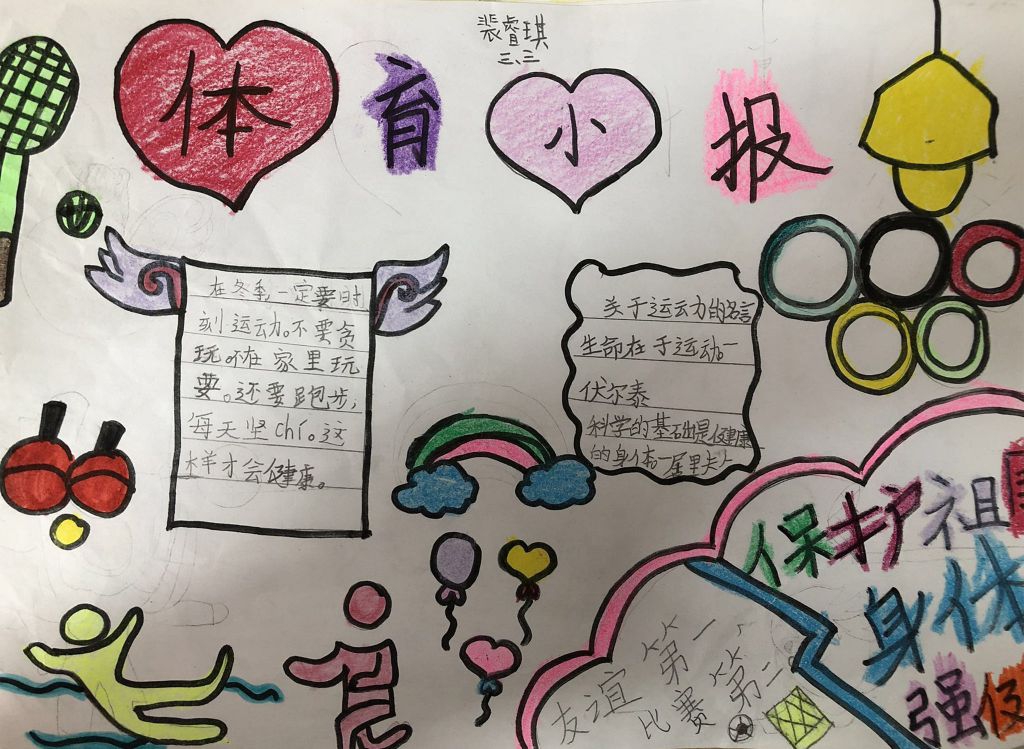 裴睿琪
三、三
体育小报
在冬季一定要时
刻运动。不要贪
玩。不在家里玩
耍。还要跑步,
每天坚chí。这
样才会健康。
关于运动的名言
生命在于运动一
伏尔泰
科学的基础是健康
的身体。一居里夫人
保护祖
身体
强
友谊第一,
比赛第二